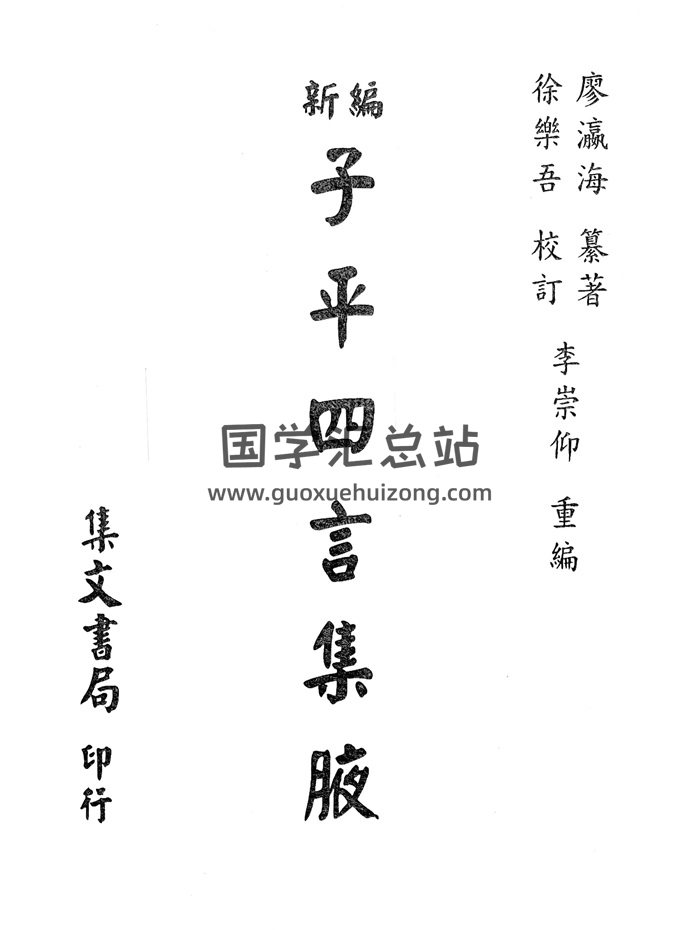 廖瀛海 纂著
徐樂吾 校訂
李崇仰 重編
新編
子平四言集腋
集文書局 印行
国学汇总站
www.guoxuehuizong.com